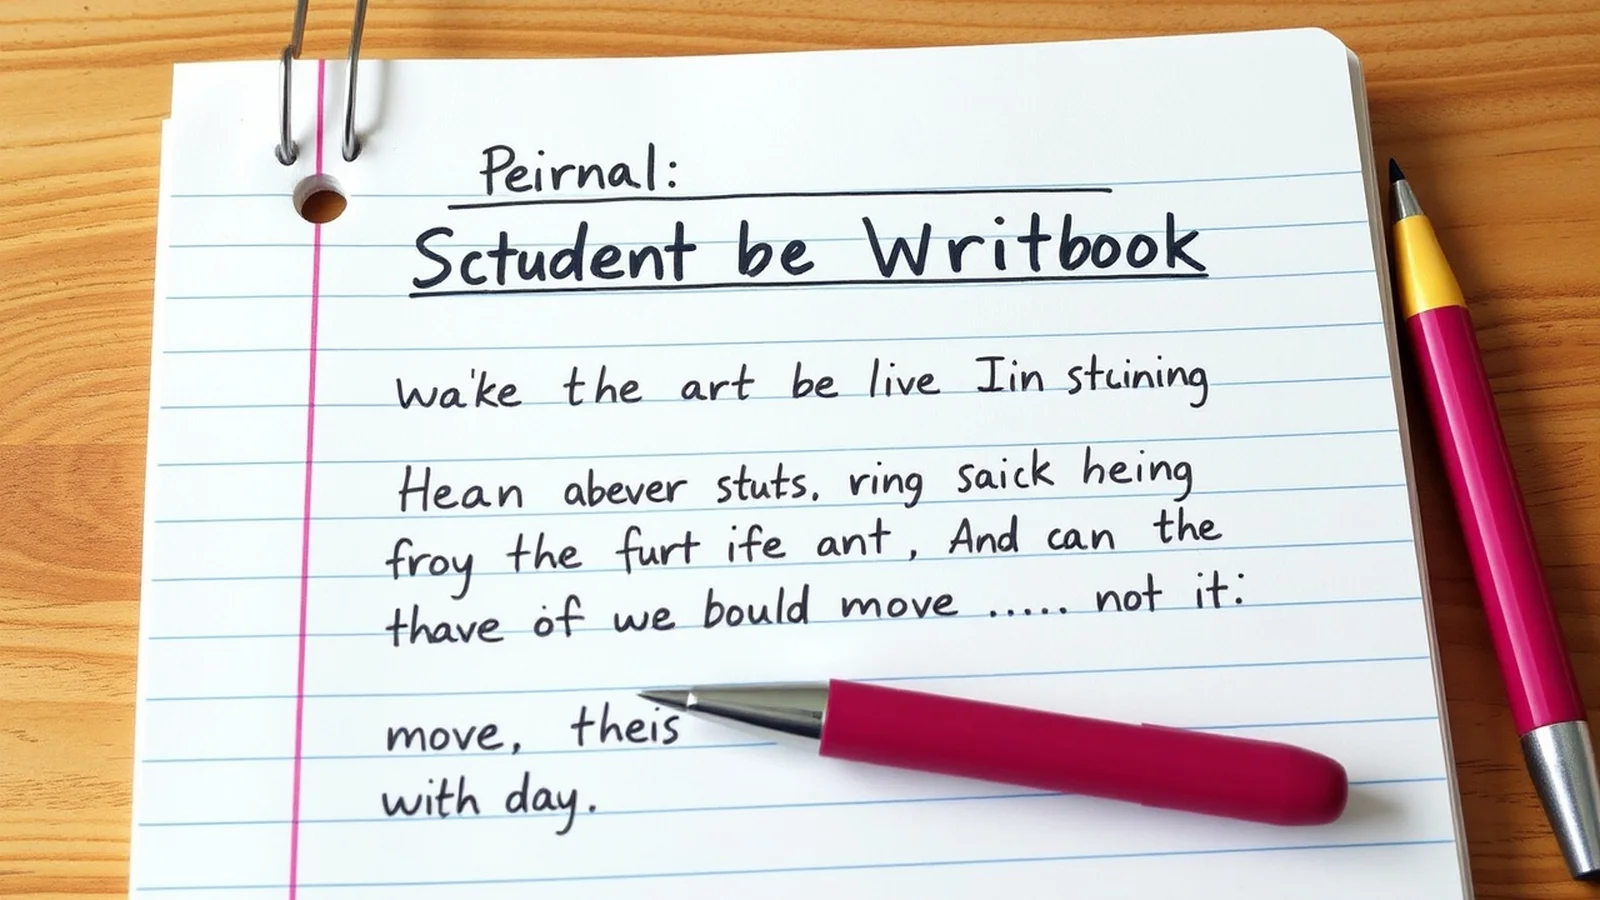 Peirnal:
Sctudent be Writbook
wa'ke the art be live Iin stuining
Hean abever stuts. ring saick heing
froy the furt ife ant, And can the
thave of we bould move ..... not it:
move, theis
with day.